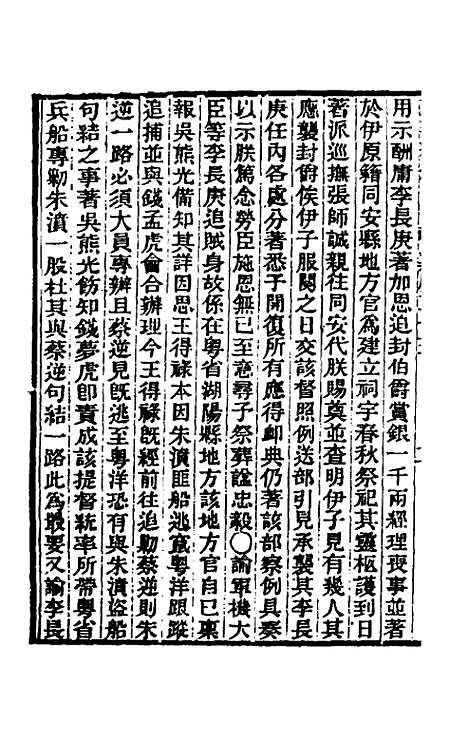 用示酬庸李長庚著加恩追封伯爵賞銀一千兩經理喪事並著
於伊原籍同安縣地方官為建立祠宇春秋祭祀其靈柩護到日
著派巡撫張師誠親往同安代朕賜奠並查明伊子見有幾人其
應襲封爵俟伊子服闋之日交該督照例送部引見承襲其李長
庚任內各處分著悉予開復所有應得卹典仍著該部察例具奏
以示朕篤念勞臣施恩無已至意尋予祭葬諡忠毅〇諭軍機大
臣等李長庚追賊身故係在粵省潮陽縣地方該地方官自已稟
報吳熊光備知其詳因思王得祿本因朱濆匪船逃竄粵洋跟蹤
追捕並與錢孟虎會合辦理今王得祿既經前往追勦蔡逆則朱
逆一路必須大員專辦且蔡逆見既逃至粵洋恐有與朱濆盜船
句結之事著吳熊光飭知錢夢虎即責成該提督統率所帶粵省
兵船專勦朱濆一股杜其與蔡逆句結一路此為最要又諭李長